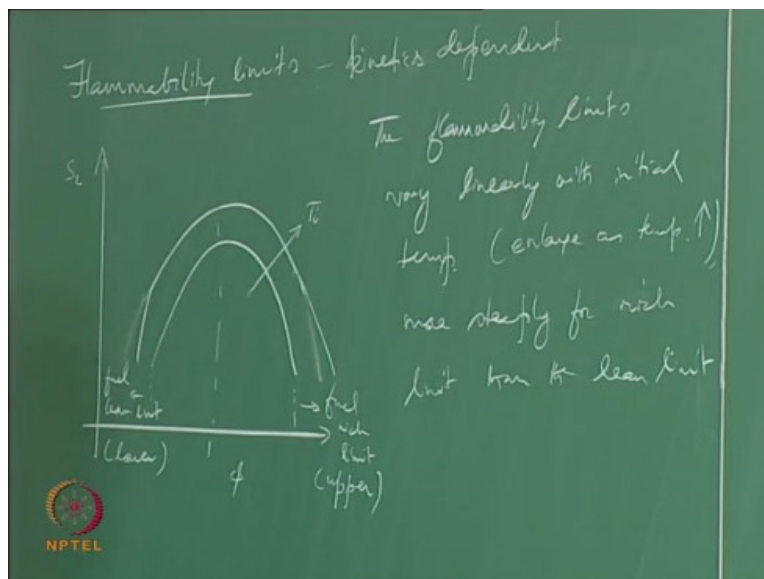 Flammability limits – kinetics dependent
The flammability limits
vary linearly with initial
temp. (enlarge as temp. ↑)
more steeply for rich
limit than the lean limit
S_L
T_i
fuel
lean limit
(lower)
1
ϕ
→ fuel
rich
limit
(upper)
NPTEL